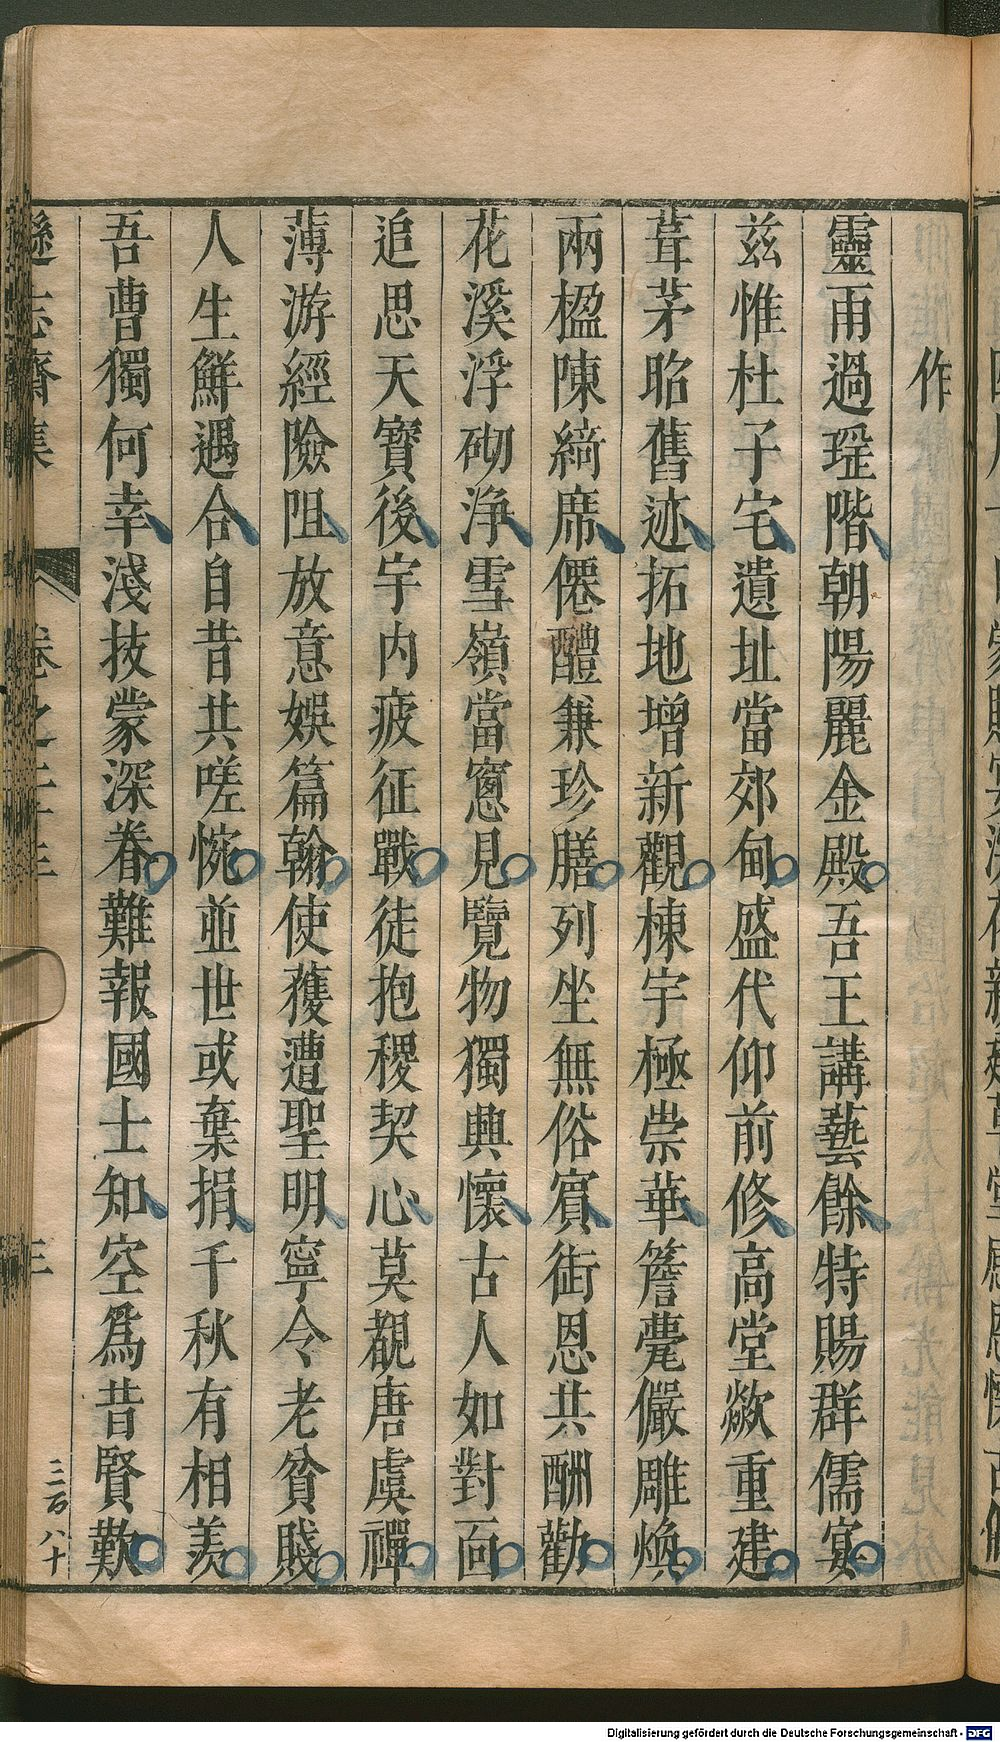 作
靈雨過瑶階朝陽麗金殿吾王講藝餘特賜群儒宴
兹惟杜子宅遺址當郊甸盛代仰前修高堂歘重建
葺茅昭舊迹拓地增新觀棟宇極崇華簷甍儼雕煥
兩楹陳綺席僊醴兼珍膳列坐無俗賓銜恩共酬勸
花溪浮砌淨雪嶺當窻見覽物獨興懷古人如對面
追思天寳後宇内疲征戰徒抱稷契心莫覩唐虞禪
薄游經險阻放意娛篇翰使獲遭聖明寧令老貧賤
人生鮮遇合自昔共嗟惋並世或棄捐千秋有相羨
吾曹獨何幸淺技蒙深眷難報國士知空爲昔賢歎
遜志齋集
卷之二十三
三
三百八十
Digitalisierung gefördert durch die Deutsche Forschungsgemeinschaft - DFG